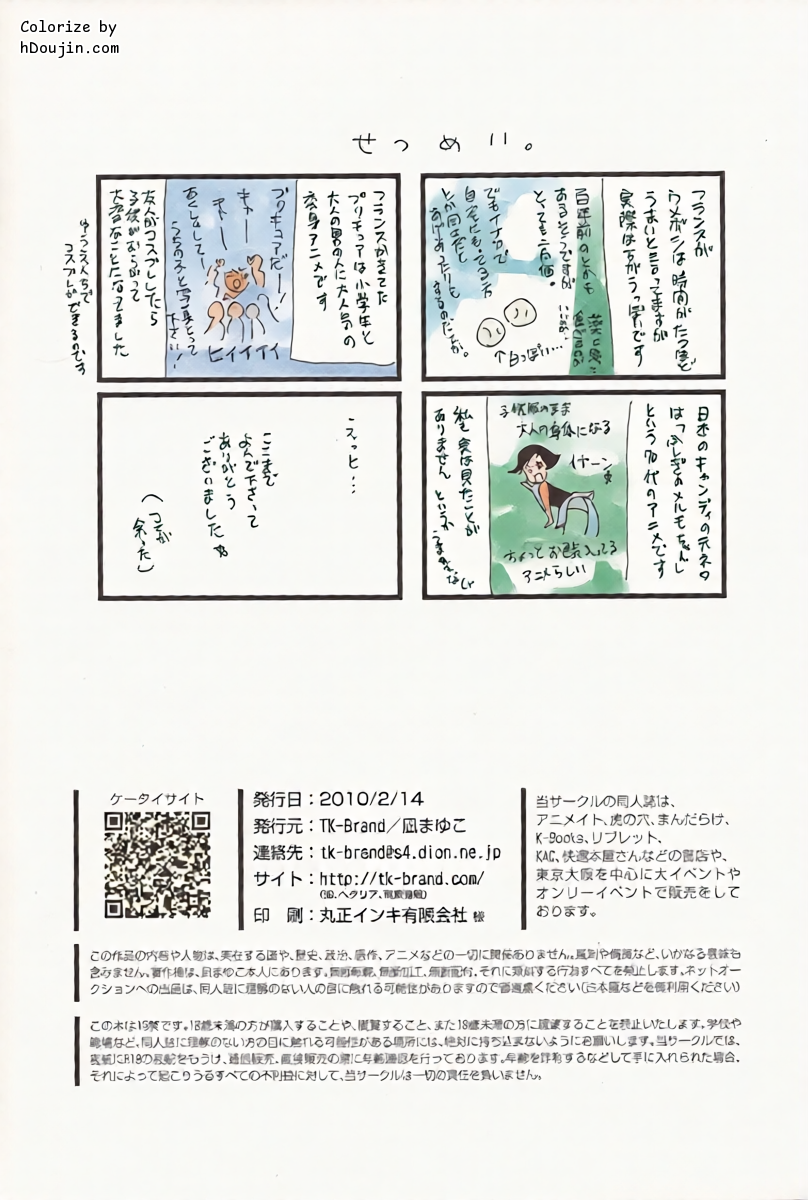 Colorize by
hDoujin.com
せつめい。
フランスが
ウメボシは時間がたつほど
うまいと言ってますが
実際は方がうっ実です
百年前のとかも
あるそうですが
とっても高価。
でもイナカで
↑白っぽい…
フランスがきてた
プリキュアは小学生と
大人の男の人に大人気の
変身アニメです
プリキュアだー!
キャー
キャー
うちの子と写真とって
下さい!
ヒィイイイ
友人がコスプレしたら
子供がむらがって
大変なことになってました
コスプレができるのです
日本のキャンディの元ネタ
は「ふしぎなメルモちゃん」
という70代のアニメです
子供服のまま
大人の身体になる
イヤーン
ちょっとお色気入ってる
アニメらしい
私も実は見たことが
ありません というか
えっと…
ここまで
よんで下さって
ありがとう
ございました
(コマが
余った)
ケータイサイト
発行日:2010/2/14
発行元:TK-Brand/凪まゆこ
連絡先:tk-brand@s4.dion.ne.jp
サイト:http://tk-brand.com/
印 刷:丸正インキ有限会社 様
当サークルの同人誌は、
アニメイト、虎の穴、まんだらけ、
K-Books、リブレット、
KAC、快適本屋さんなどの書店や、
東京大阪を中心に大イベントや
オンリーイベントで販売をして
おります。
この作品の内容や人物は、実在する国や、歴史、政治、原作、アニメなどの一切に関係ありません。風刺や侮蔑など、いかなる意味も
含みません。著作権は、凪まゆこ本人にあります。無断転載、無断加工、無断配付、それに類似する行為すべてを禁止します。ネットオー
クションへの出品は、同人誌に理解のない人の目に触れる可能性がありますので御遠慮ください(古本屋などを御利用ください)
この本は18禁です。18歳未満の方が購入することや、閲覧すること、また18歳未満の方に販売することを禁止いたします。学校や
職場など、同人誌に理解のない方の目に触れる可能性がある場所には、絶対に持ち込まないようにお願いします。当サークルでは、
表紙にR18の表記をもうけ、通信販売、直接販売の際に年齢確認を行っております。年齢を詐称するなどして手に入れられた場合、
それによって起こりうるすべての不利益に対して、当サークルは一切の責任を負いません。